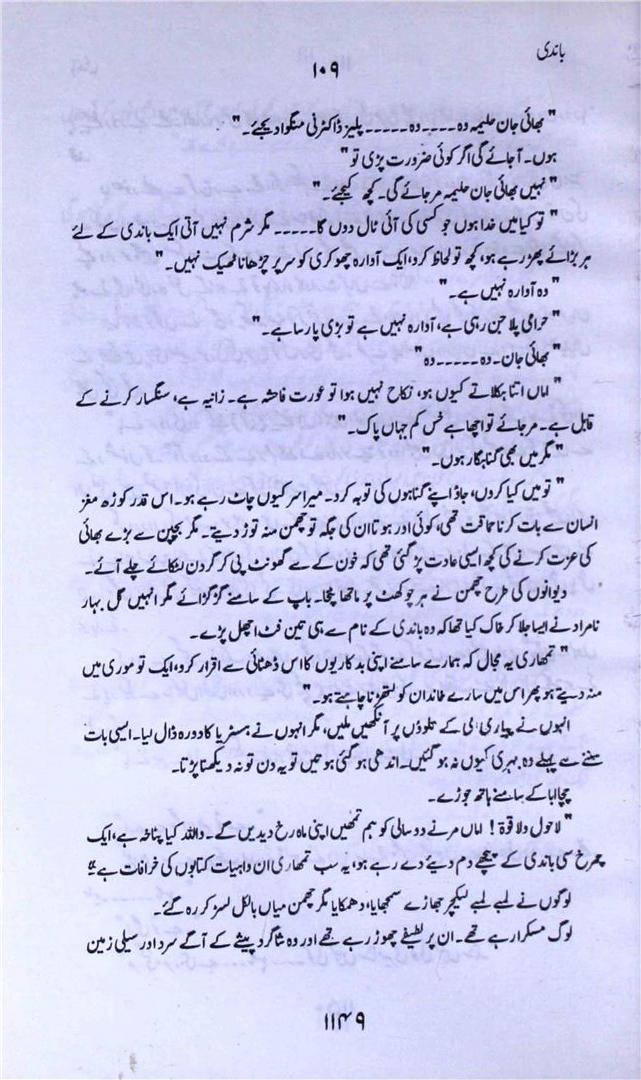 باندی
۱۰۹
" بھائی جان حلیمہ وہ ۔۔۔۔ وہ ۔۔۔۔۔ پلیز ڈاکٹرنی منگوا دیجئے۔"
ہوں۔ آجائے گی اگر کوئی ضرورت پڑی تو "
" نہیں بھائی جان حلیمہ مر جائے گی۔ کچھ کیجئے۔"
" تو کیا میں خدا ہوں جو کسی کی آئی ٹال دوں گا ۔۔۔۔۔ مگر شرم نہیں آتی ایک باندی کے لئے
ہربڑائے پھر رہے ہو، کچھ تو لحاظ کرو، ایک آوارہ چھوکری کو سر پر چڑھانا ٹھیک نہیں۔"
" وہ آوارہ نہیں ہے۔"
" حرامی پلا جن رہی ہے، آوارہ نہیں ہے تو بڑی پارسا ہے۔"
" بھائی جان۔ وہ ۔۔۔۔۔ وہ "
" اماں اتنا ہکلاتے کیوں ہو، نکاح نہیں ہوا تو عورت فاحشہ ہے۔ زانیہ ہے، سنگسار کرنے کے
قابل ہے۔ مر جائے تو اچھا ہے خس کم جہاں پاک۔"
" مگر میں بھی گناہگار ہوں۔"
" تو میں کیا کروں، جاؤ اپنے گناہوں کی توبہ کرو۔ میرا سر کیوں چاٹ رہے ہو۔ اس قدر کوڑھ مغز
انسان سے بات کرنا حماقت تھی، کوئی اور ہوتا ان کی جگہ تو چھمن منہ توڑ دیتے۔ مگر بچپن سے بڑے بھائی
کی عزت کرنے کی کچھ ایسی عادت پڑ گئی تھی کہ خون کے سے گھونٹ پی کر گردن لٹکائے چلے آئے۔
دیوانوں کی طرح چھمن نے ہر چوکھٹ پر ماتھا پٹخا۔ باپ کے سامنے گڑگڑائے مگر انہیں گل بہار
نامراد نے ایسا جلا کر خاک کیا تھا کہ وہ باندی کے نام سے ہی تین فٹ اچھل پڑے۔
" تمھاری یہ مجال کہ ہمارے سامنے اپنی بدکاریوں کا اس ڈھٹائی سے اقرار کرو، ایک تو موری میں
منہ دیتے ہو پھر اس میں سارے خاندان کو لتھیڑنا چاہتے ہو۔"
انہوں نے پیاری امی کے تلوؤں پر آنکھیں ملیں، مگر انہوں نے ہسٹریا کا دورہ ڈال لیا۔ ایسی بات
سننے سے پہلے وہ بہری کیوں نہ ہو گئیں۔ اندھی ہو گئی ہوتیں تو یہ دن تو نہ دیکھنا پڑتا۔
چچا ابا کے سامنے ہاتھ جوڑے۔
" لاحول ولا قوۃ! اماں مرنے دو سالی کو ہم تمھیں اپنی ماہ رخ دیدیں گے۔ واللہ کیا پٹاخہ ہے، ایک
چمرخ سی باندی کے پیچھے دم دیئے دے رہے ہو، یہ سب تمھاری ان واہیات کتابوں کی خرافات ہے"
لوگوں نے لمبے لمبے لیکچر جھاڑے سمجھایا، دھمکایا مگر چھمن میاں بالکل لسڑ کر رہ گئے۔
لوگ مسکرا رہے تھے۔ ان پر لطیفے چھوڑ رہے تھے اور وہ شاگرد پیشے کے آگے سرد اور سیلی زمین
۱۱۴۹